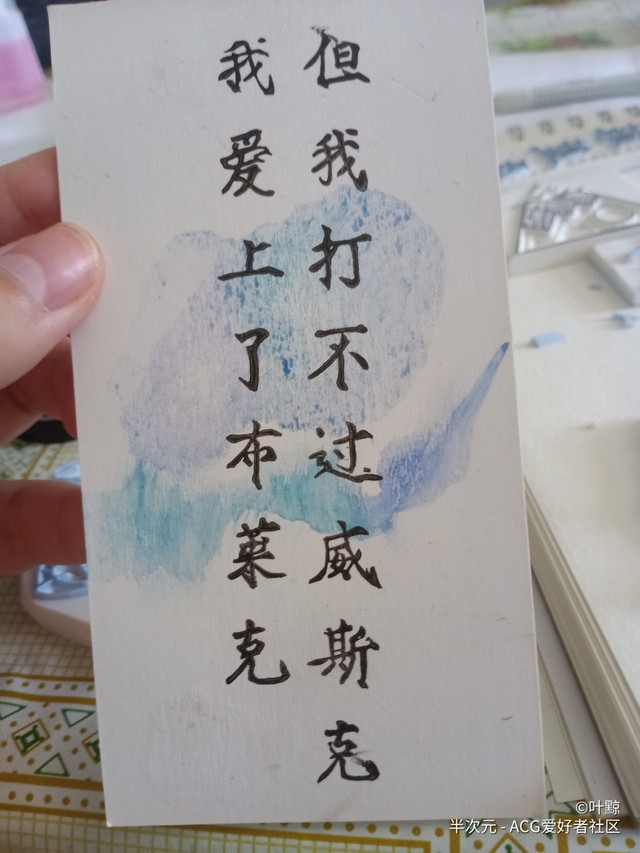 我爱上了布莱克
但我打不过威斯克
©叶黥
半次元 - ACG爱好者社区